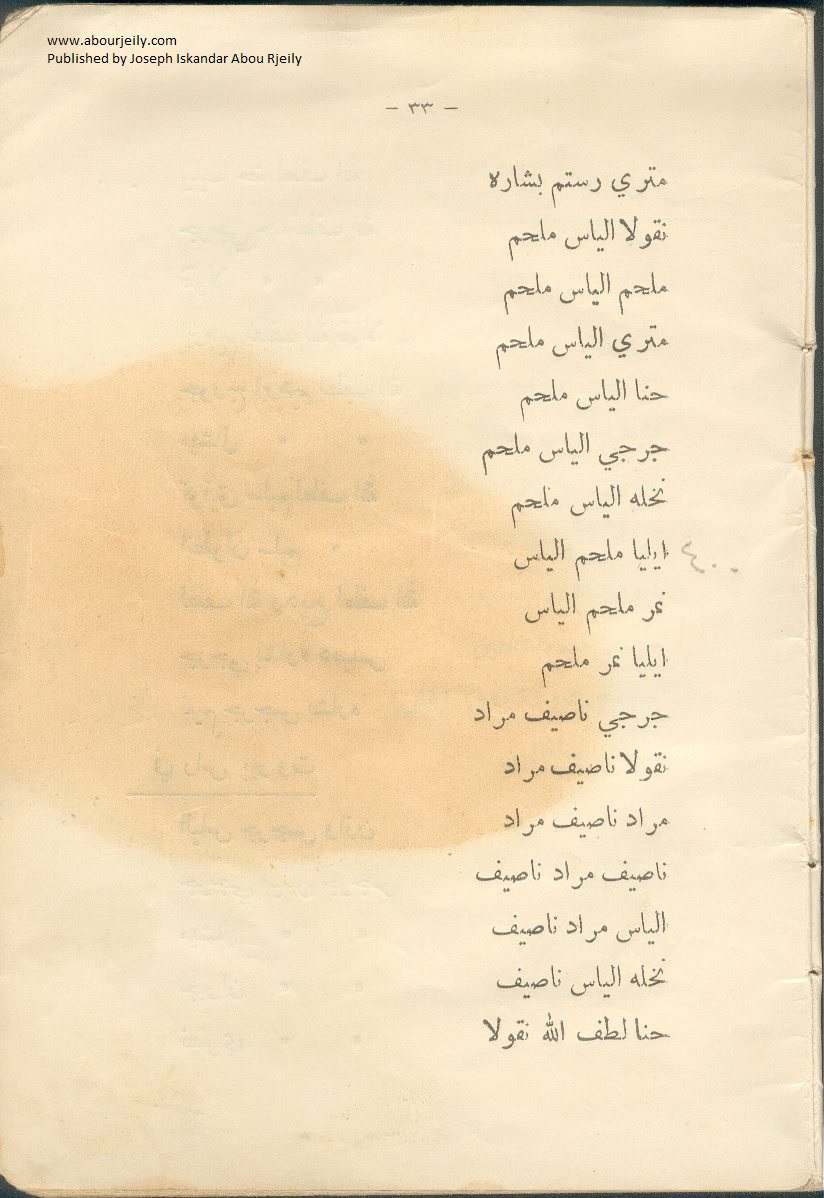 www.abourjeily.com
Published by Joseph Iskandar Abou Rjeily
- ٣٣ -
متري رستم بشاره
نقولا الياس ملحم
ملحم الياس ملحم
متري الياس ملحم
حنا الياس ملحم
جرجي الياس ملحم
نخله الياس ملحم
ايليا ملحم الياس
نمر ملحم الياس
ايليا نمر ملحم
جرجي ناصيف مراد
نقولا ناصيف مراد
مراد ناصيف مراد
ناصيف مراد ناصيف
الياس مراد ناصيف
نخله الياس ناصيف
حنا لطف الله نقولا